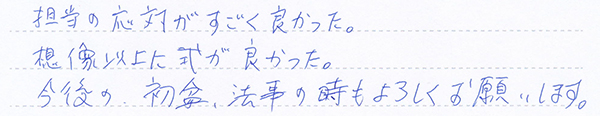 担当の応対がすごく良かった。
想像以上に式が良かった。
今後の、初盆、法事の時もよろしくお願いします。